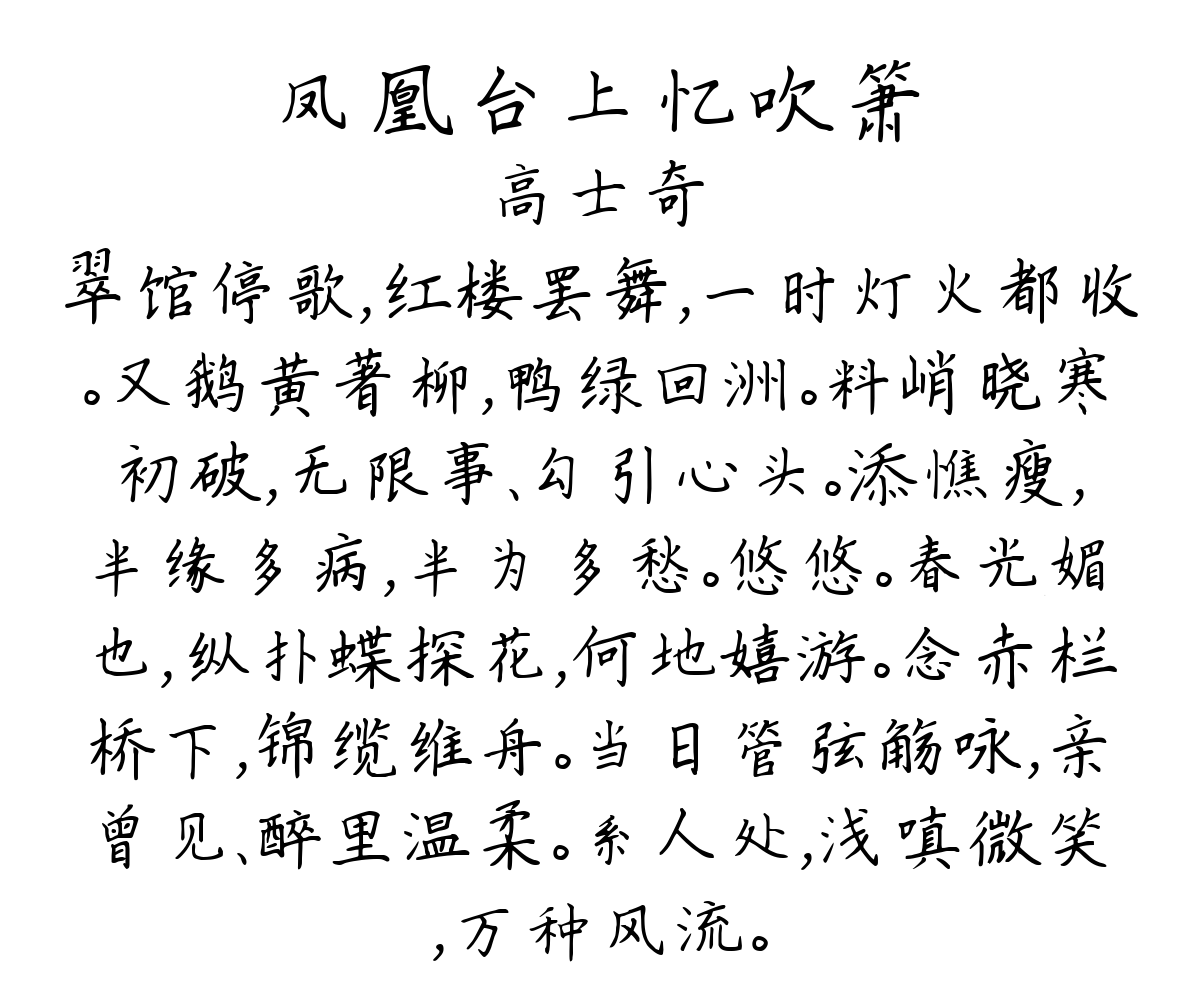 凤凰台上忆吹箫
高士奇
翠馆停歌,红楼罢舞,一时灯火都收
。又鹅黄著柳,鸭绿回洲。料峭晓寒
初破,无限事、勾引心头。添憔瘦,
半缘多病,半为多愁。悠悠。春光媚
也,纵扑蝶探花,何地嬉游。念赤栏
桥下,锦缆维舟。当日管弦觞咏,亲
曾见、醉里温柔。系人处,浅嗔微笑
,万种风流。